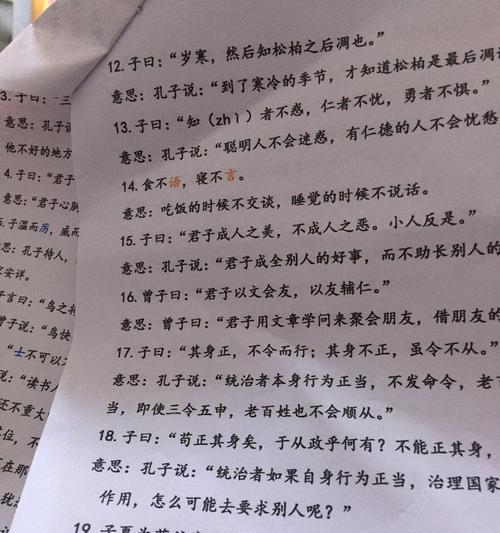 12. 子曰：“岁寒，然后知松柏之后凋也。”
意思：孔子说：“到了寒冷的季节，才知道松柏是最后凋
13. 子曰：“知（zhì）者不惑，仁者不忧，勇者不惧。”
意思：孔子说：“聪明人不会迷惑，有仁德的人不会忧愁
14. 食不语，寝不言。
意思：吃饭的时候不交谈，睡觉的时候不说话。
15. 子曰：“君子成人之美，不成人之恶。小人反是。”
意思：孔子说：“君子成全别人的好事，而不助长别人的
16. 曾子曰：“君子以文会友，以友辅仁。”
意思：曾子曰：“君子用文章学问来聚会朋友，借朋友的
17. 子曰：“其身正，不令而行；其身不正，虽令不从。”
意思：孔子说：“统治者本身行为正当，不发命令，老
当，即使三令五申，老百姓也不会顺从。”
18. 子曰：“苟正其身矣，于从政乎何有？不能正其身，
意思：孔子说：“统治者如果自身行为正当，治理国家
作用，怎么可能去要求别人呢？”
19. 子夏为
3. 子曰：“三
意思：孔子说
他不好的地方
4. 子曰：“君子
意思：“君子心
子温而厉，威而
意思：孔子待人，
安详。
子言曰：“鸟之
曾子说：“鸟快
“士不可以
说：“读书人
不重大
位，不
在那
犹